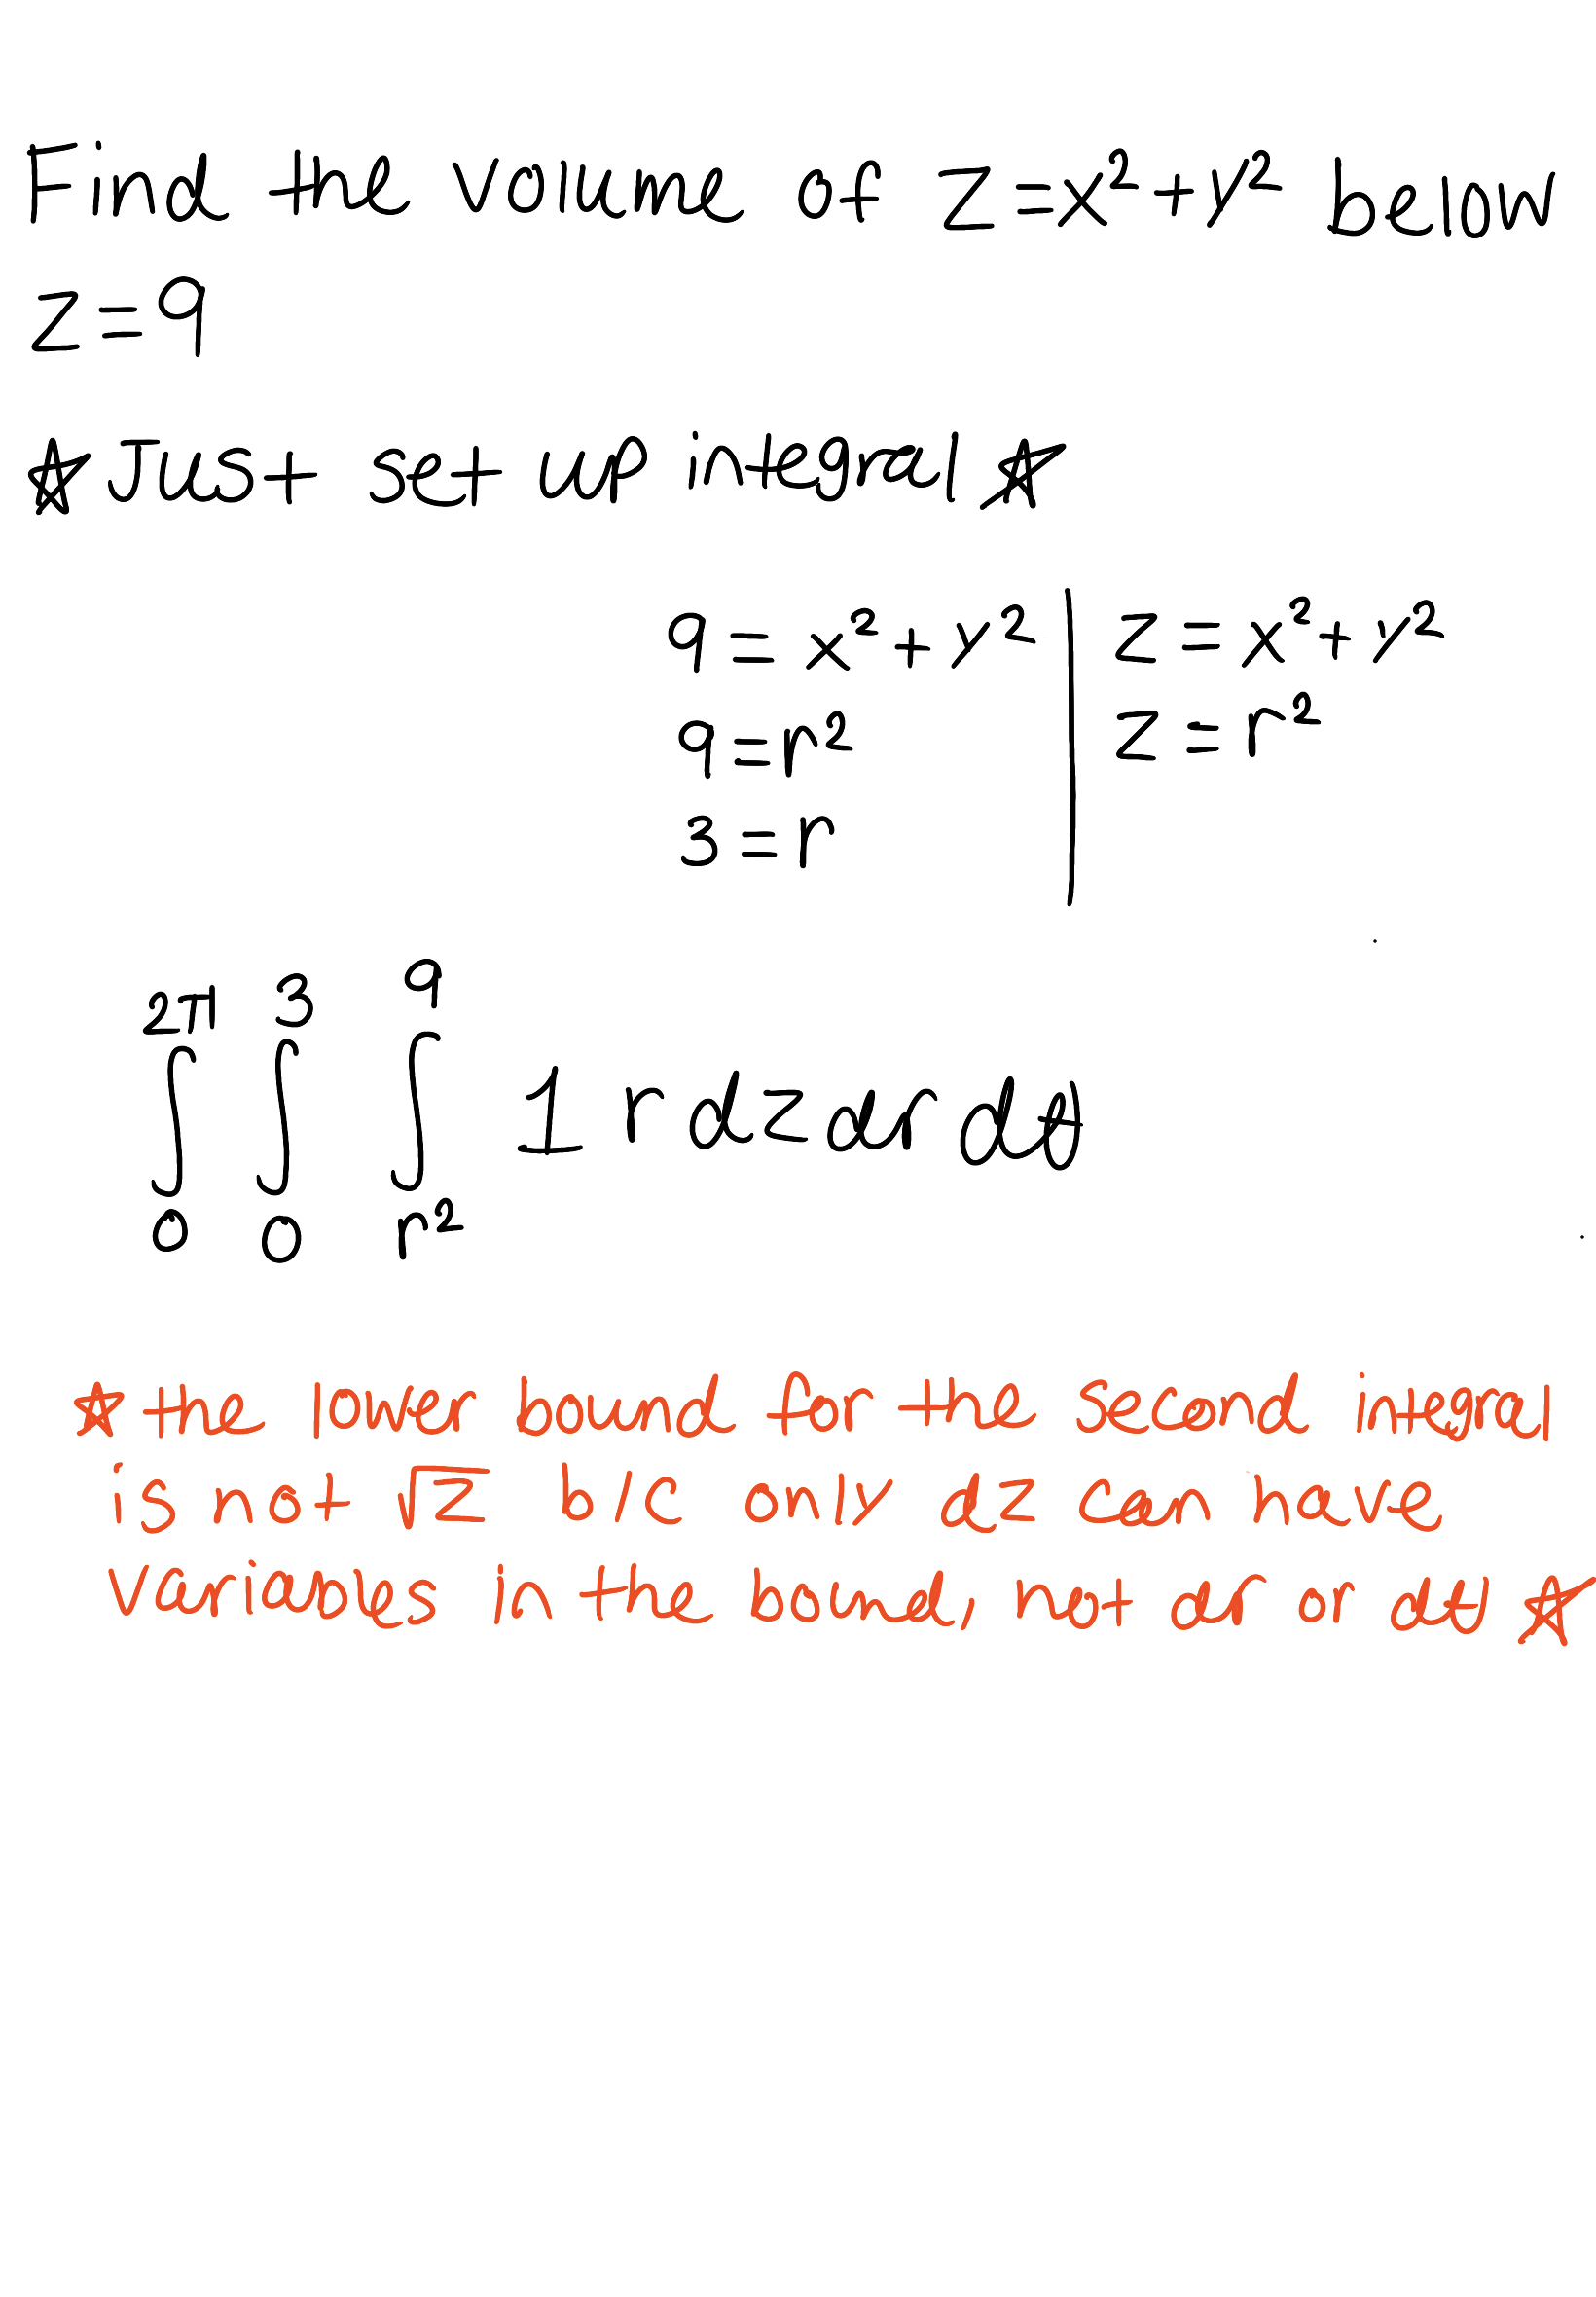 Find the volume of z=x²+y² below
z=9
☆ Just set up integral ☆
9 = x²+y² | z = x²+y²
9=r² | z=r²
3=r
2π 3 9
∫ ∫ ∫ 1 r dz dr dθ
0 0 r²
☆ the lower bound for the second integral
is not √z b/c only dz can have
variables in the bound, not dr or dθ ☆